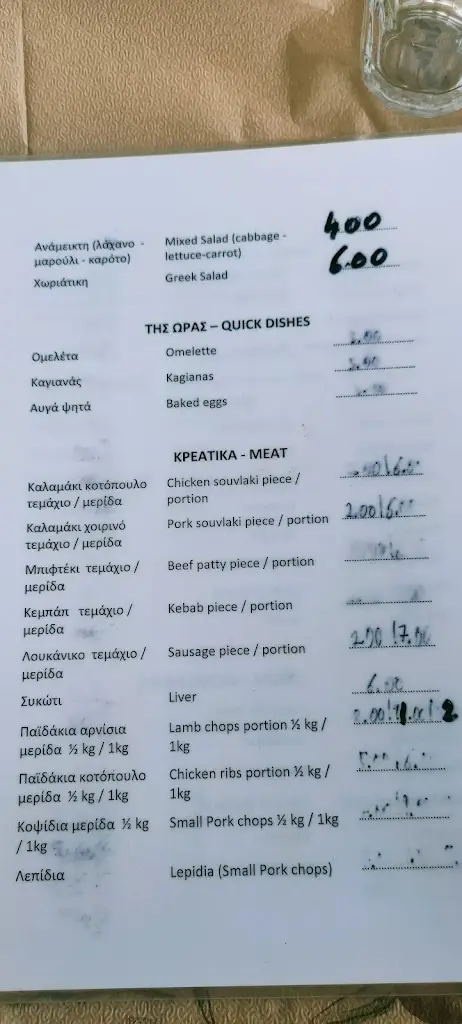 Ανάμεικτη (λάχανο - Mixed Salad (cabbage - 400
μαρούλι - καρότο) lettuce-carrot)
Χωριάτικη Greek Salad 6.00
ΤΗΣ ΩΡΑΣ – QUICK DISHES
Ομελέτα Omelette
Καγιανάς Kagianas
Αυγά ψητά Baked eggs
ΚΡΕΑΤΙΚΑ - MEAT
Καλαμάκι κοτόπουλο Chicken souvlaki piece /
τεμάχιο / μερίδα portion
Καλαμάκι χοιρινό Pork souvlaki piece / portion 2.00
τεμάχιο / μερίδα
Μπιφτέκι τεμάχιο / Beef patty piece / portion
μερίδα
Κεμπάπ τεμάχιο / Kebab piece / portion
μερίδα
Λουκάνικο τεμάχιο / Sausage piece / portion
μερίδα
Συκώτι Liver 6.00
Παϊδάκια αρνίσια Lamb chops portion ½ kg /
μερίδα ½ kg / 1kg 1kg
Παϊδάκια κοτόπουλο Chicken ribs portion ½ kg /
μερίδα ½ kg / 1kg 1kg
Κοψίδια μερίδα ½ kg Small Pork chops ½ kg / 1kg
/ 1kg
Λεπίδια Lepidia (Small Pork chops)